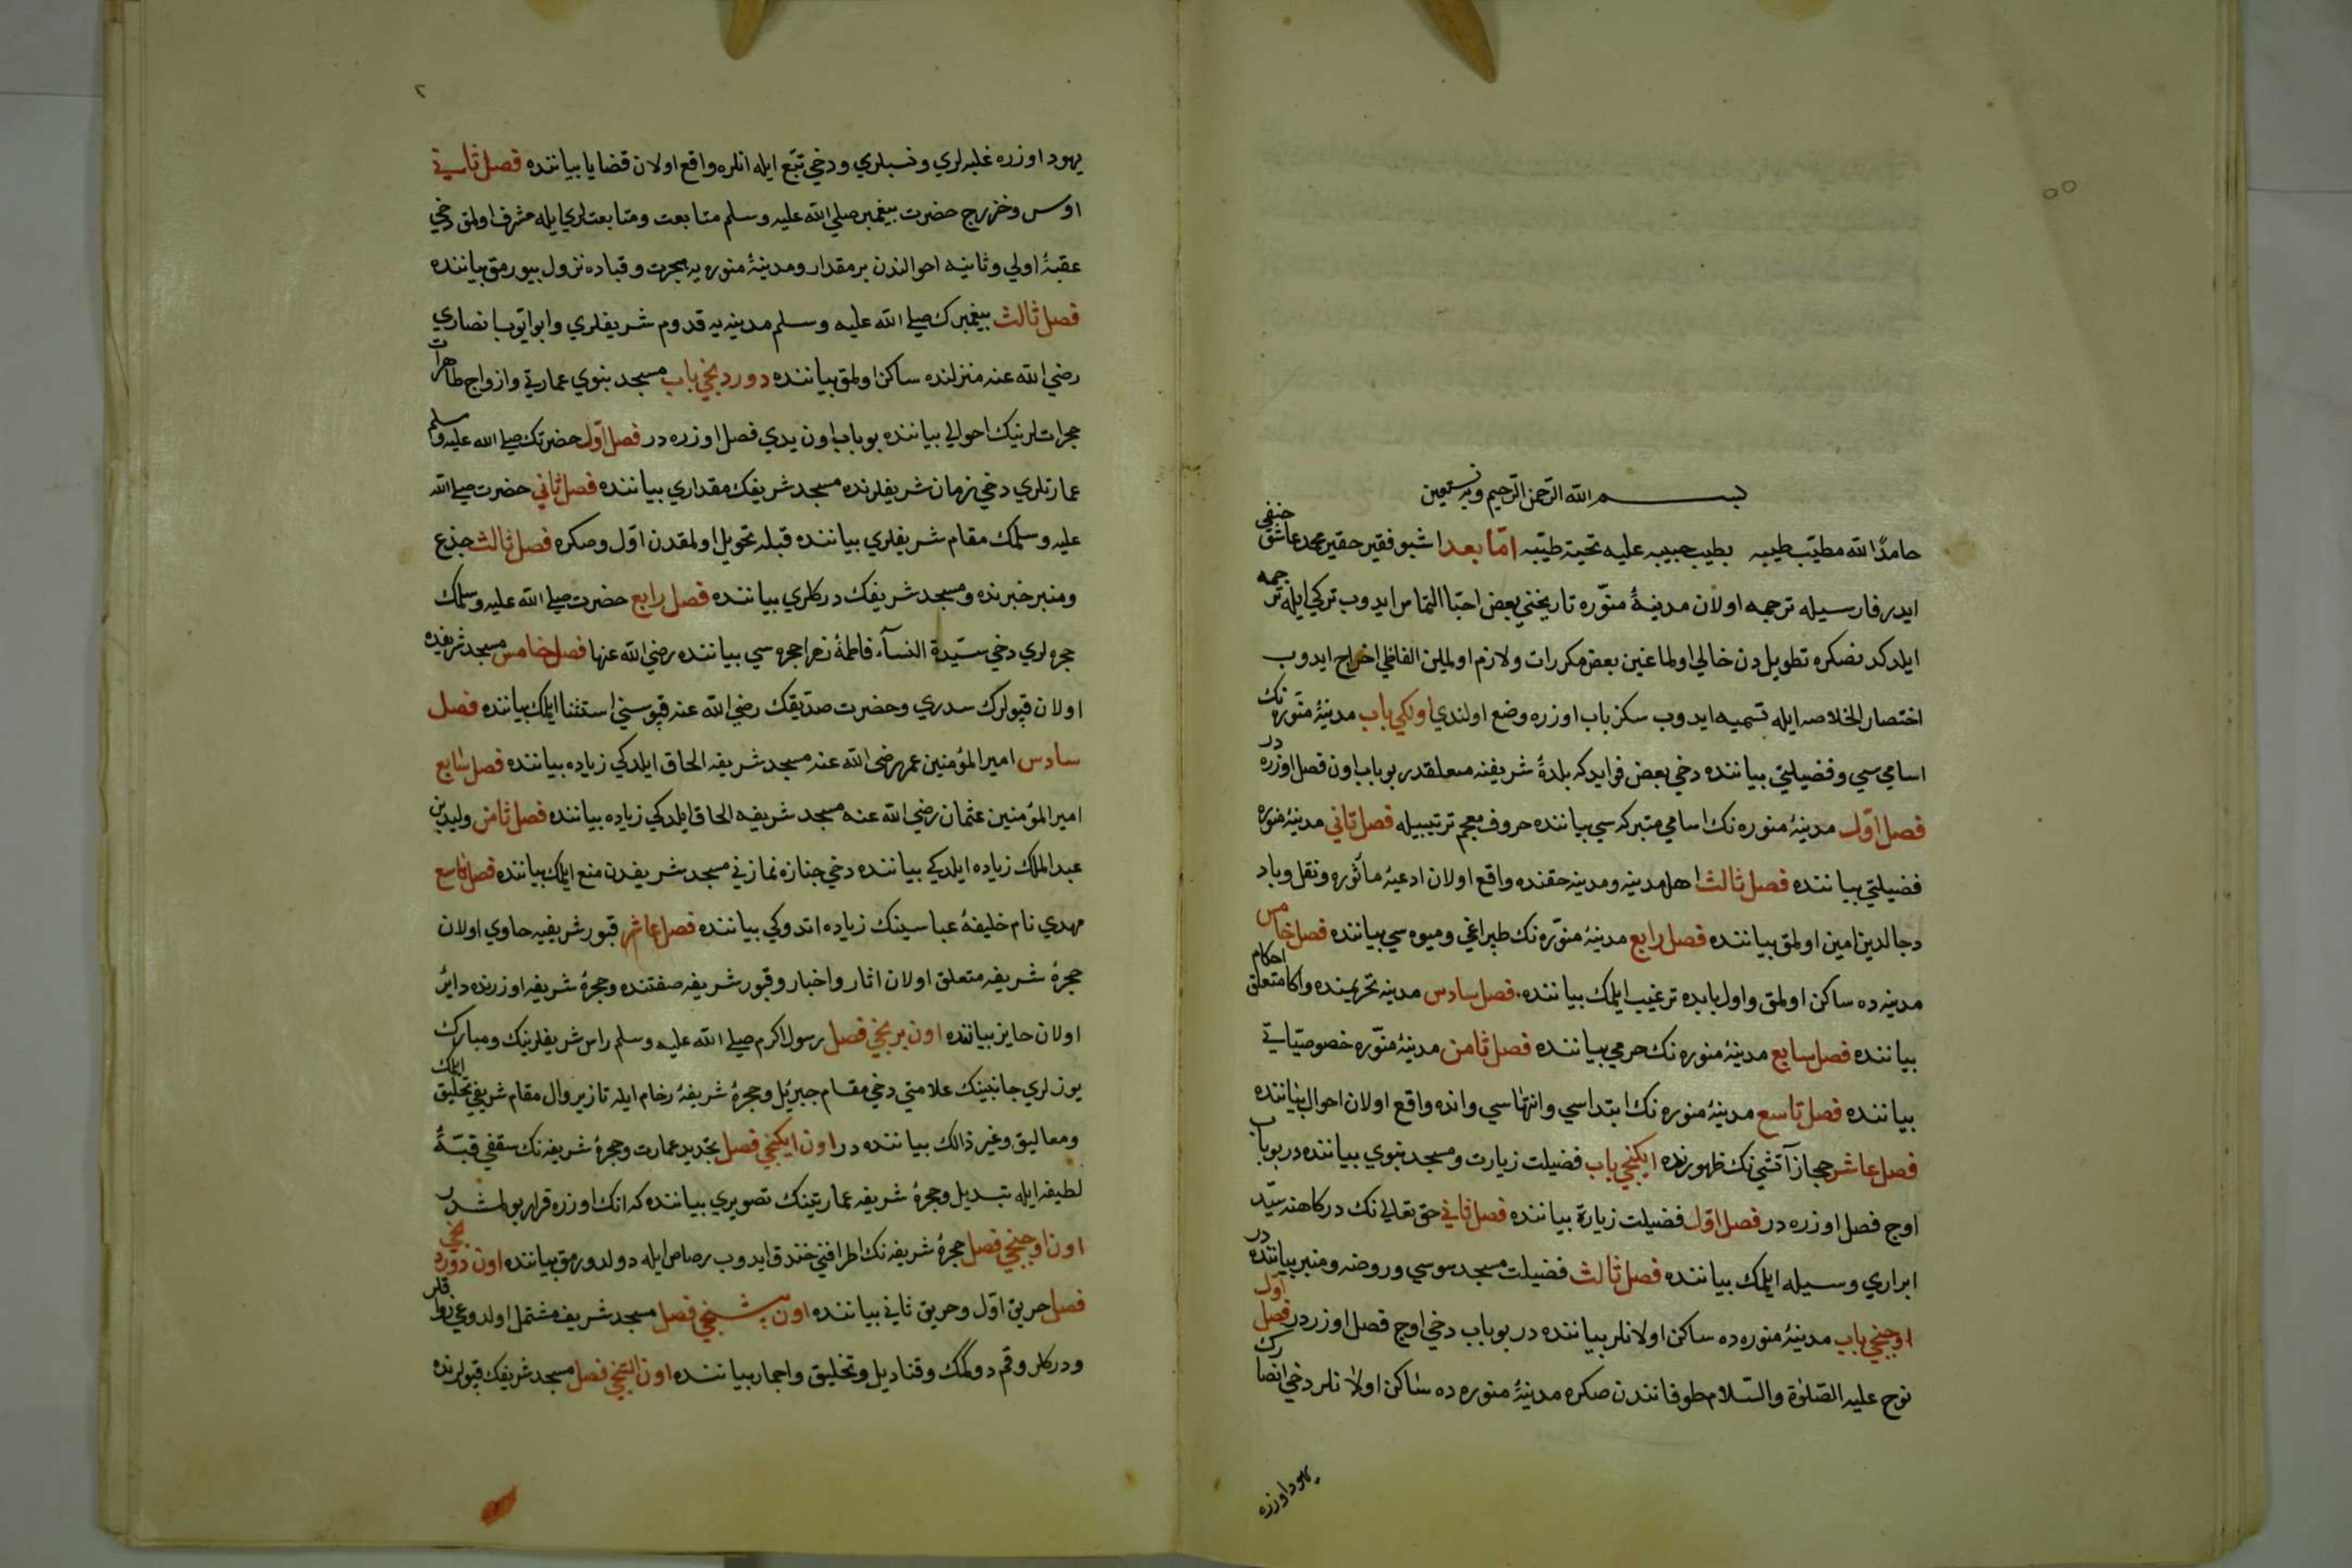 بســـم الله الرحمن الرحيم وبه نستعين
حامدًا لله مطيّب طيبه بطيب حبيبه عليه تحية طيّبه امّا بعد اشبو فقير حقير محمد عاشق حنفي
ايدر فارسيله ترجمه اولان مدينۀ منوّره تاريخني بعض احبّا التماس ايدوب تركي ايله ترجمه
ايلدكدنصكره تطويلدن خالي اولماغين بعض مكررات ولازم اولملين الفاظي اخراج ايدوب
اختصار الخلاصه ايله تسميه ايدوب سكز باب اوزره وضع اولندي اولكي باب مدينۀ منوّره نك
اسامي سي وفضيلتي بياننده دخي بعض فوايد كه بلدۀ شريفنه متعلقدر بو باب اون فصل اوزره در
فصل اوّل مدينۀ منوره نك اسامي متبركه سي بياننده حروف معجم ترتيبيله فصل ثاني مدينۀ منوره
فضيلتي بياننده فصل ثالث اهل مدينه ومدينه حقنده واقع اولان ادعيۀ مأثوره ونقل وباد
دجالدين امين اولمق بياننده فصل رابع مدينۀ منوّره نك طپراغي وميوه سي بياننده فصل خامس
مدينه ده ساكن اولمق واول بابده ترغيب ايلمك بياننده فصل سادس مدينه تحريمنده واكا متعلق احكام
بياننده فصل سابع مدينۀ منوره نك حرمي بياننده فصل ثامن مدينۀ منوّره خصوصيّاتي
بياننده فصل تاسع مدينۀ منوره نك ابتداسي وانتهاسي وانده واقع اولان احوال بياننده
فصل عاشر حجاز آتشي نك ظهورنده ايكنجي باب فضيلت زيارت ومسجد نبوي بياننده در بو باب
اوج فصل اوزره در فصل اوّل فضيلت زيارة بياننده فصل ثاني حق تعالى نك دركاهنه سيّد
ابراري وسيله ايلمك بياننده فصل ثالث فضيلت مسجد سوسي وروضه ومنبر بياننده در
اوجنجي باب مدينۀ منوره ده ساكن اولانلر بياننده در بو باب دخي اوج فصل اوزردر فصل اول
نوح عليه الصّلوة والسّلام طوفانندن صكره مدينۀ منوره ده ساكن اولانلر دخي انصارك
يهود اوزره
٢
يهود اوزره غلبه لري ونسبلري ودخي تبّع ايله انلره واقع اولان قضايا بياننده فصل ثاني
اوس وخزرج حضرت پيغمبر صلي الله عليه وسلم متابعت ومتابعتلري ايله مشرف اولمق دخي
عقبۀ اولي وثانيه احوالندن بر مقدار ومدينۀ منوره يه هجرت وقباده نزول بيورمق بياننده
فصل ثالث پيغمبرك صلي الله عليه وسلم مدينه يه قدوم شريفلري وابو ايّوب انصاري
رضي الله عنه منزلنده ساكن اولمق بياننده دوردنجي باب مسجد نبوي عمارتي وازواج طاهرات
حجراتلرنيك احوالي بياننده بو باب اون يدي فصل اوزره در فصل اوّل حضرتك صلي الله عليه وسلم
عمارتلري دخي زمان شريفلرنده مسجد شريفك مقداري بياننده فصل ثاني حضرت صلي الله
عليه وسلمك مقام شريفلري بياننده قبله تحويل اولمقدن اوّل وصكره فصل ثالث جذع
ومنبر خبرنده ومسجد شريفك دركلري بياننده فصل رابع حضرت صلي الله عليه وسلمك
حجره لري دخي سيّدة النسآء فاطمۀ زهرا حجره سي بياننده رضي الله عنها فصل خامس مسجد شريفده
اولان قپولرك سدري وحضرت صدّيقك رضي الله عنه قپوسني استثنا ايلمك بياننده فصل
سادس امير المؤمنين عمر رضي الله عنه مسجد شريفه الحاق ايلدكي زياده بياننده فصل سابع
امير المؤمنين عثمان رضي الله عنه مسجد شريفه الحاق ايلدكي زياده بياننده فصل ثامن وليد بن
عبد الملك زياده ايلدكي بياننده دخي جنازه نمازني مسجد شريفدن منع ايلمك بياننده فصل تاسع
مهدي نام خليفۀ عباسينك زياده اتدوكي بياننده فصل عاشر قبور شريفيه حاوي اولان
حجرۀ شريفه متعلق اولان اثار واخبار وقبور شريفه صفتنده وحجرۀ شريفه اوزرنده دائر
اولان حايز بياننده اون برنجي فصل رسول اكرم صلي الله عليه وسلم راس شريفلرنيك ومبارك
يوزلري جانبينك علامتي دخي مقام جبرئيل وحجرۀ شريفۀ رخام ايله تازير وال مقام شريفي تخليق ايلمك
ومعاليق وغير ذالك بياننده در اون ايكنجي فصل تجديد عمارت وحجرۀ شريفه نك سقفي قبّۀ
لطيفه ايله تبديل وحجرۀ شريفه عمارتينك تصويري بياننده كه انك اوزره قرار بولمشدر
اون اوجنجي فصل حجرۀ شريفه نك اطرافني خندق ايدوب رصاص ايله دولدورمق بياننده اون دوردنجي
فصل حريق اوّل وحريق ثاني بياننده اون بشنجي فصل مسجد شريف مشتمل اولدوغي رواقلر
ودركلر وقم دوكمك وقناديل وتخليق واجمار بياننده اون التنجي فصل مسجد شريفك قپولرنده